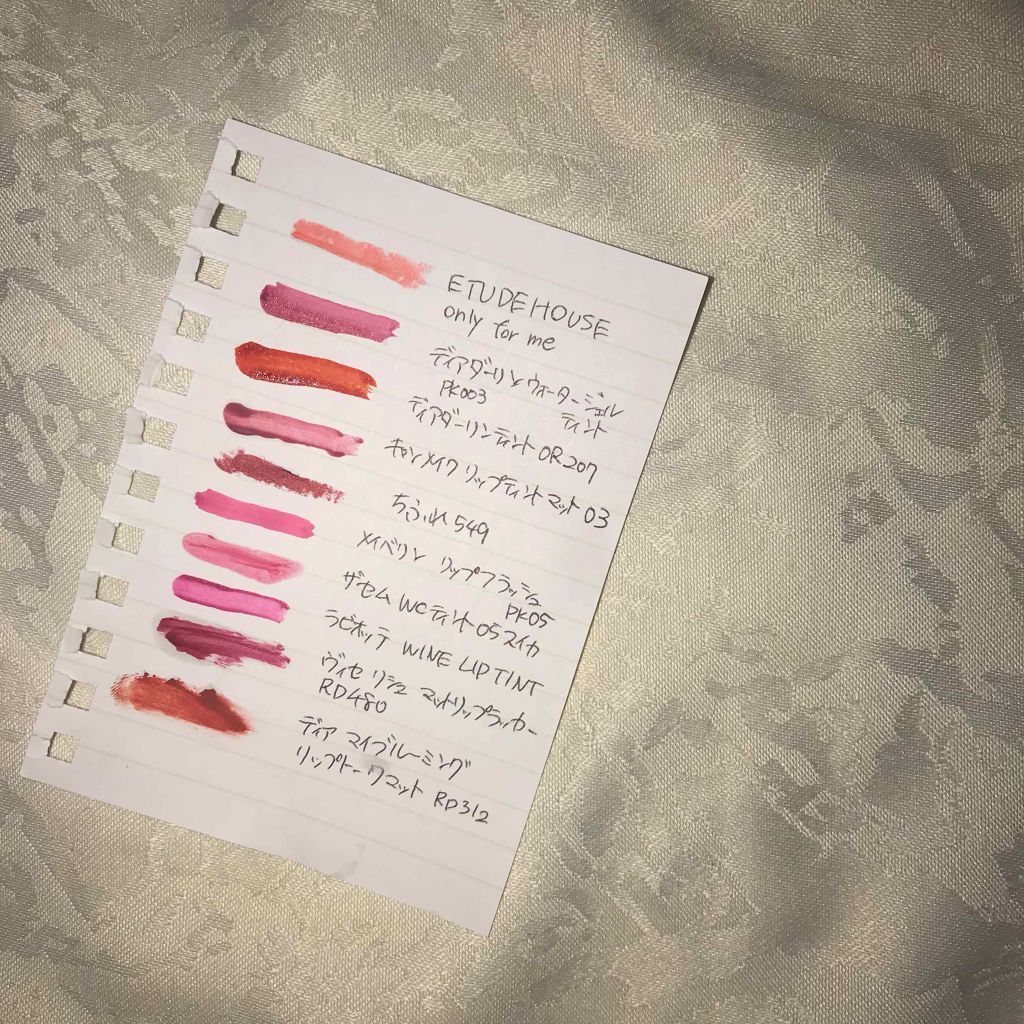 ETUDE HOUSE
only for me
ディアダーリンウォータージェル
PK003 ティント
ディアダーリンティント OR207
キャンメイク リップティントマット 03
ちふれ 549
メイベリン リップフラッシュ
PK05
ザセム WCティント 05 スイカ
ラビオッテ WINE LIP TINT
ヴィセ リシェ マットリップラッカー
RD480
ディア マイブルーミング
リップトークマット RD312